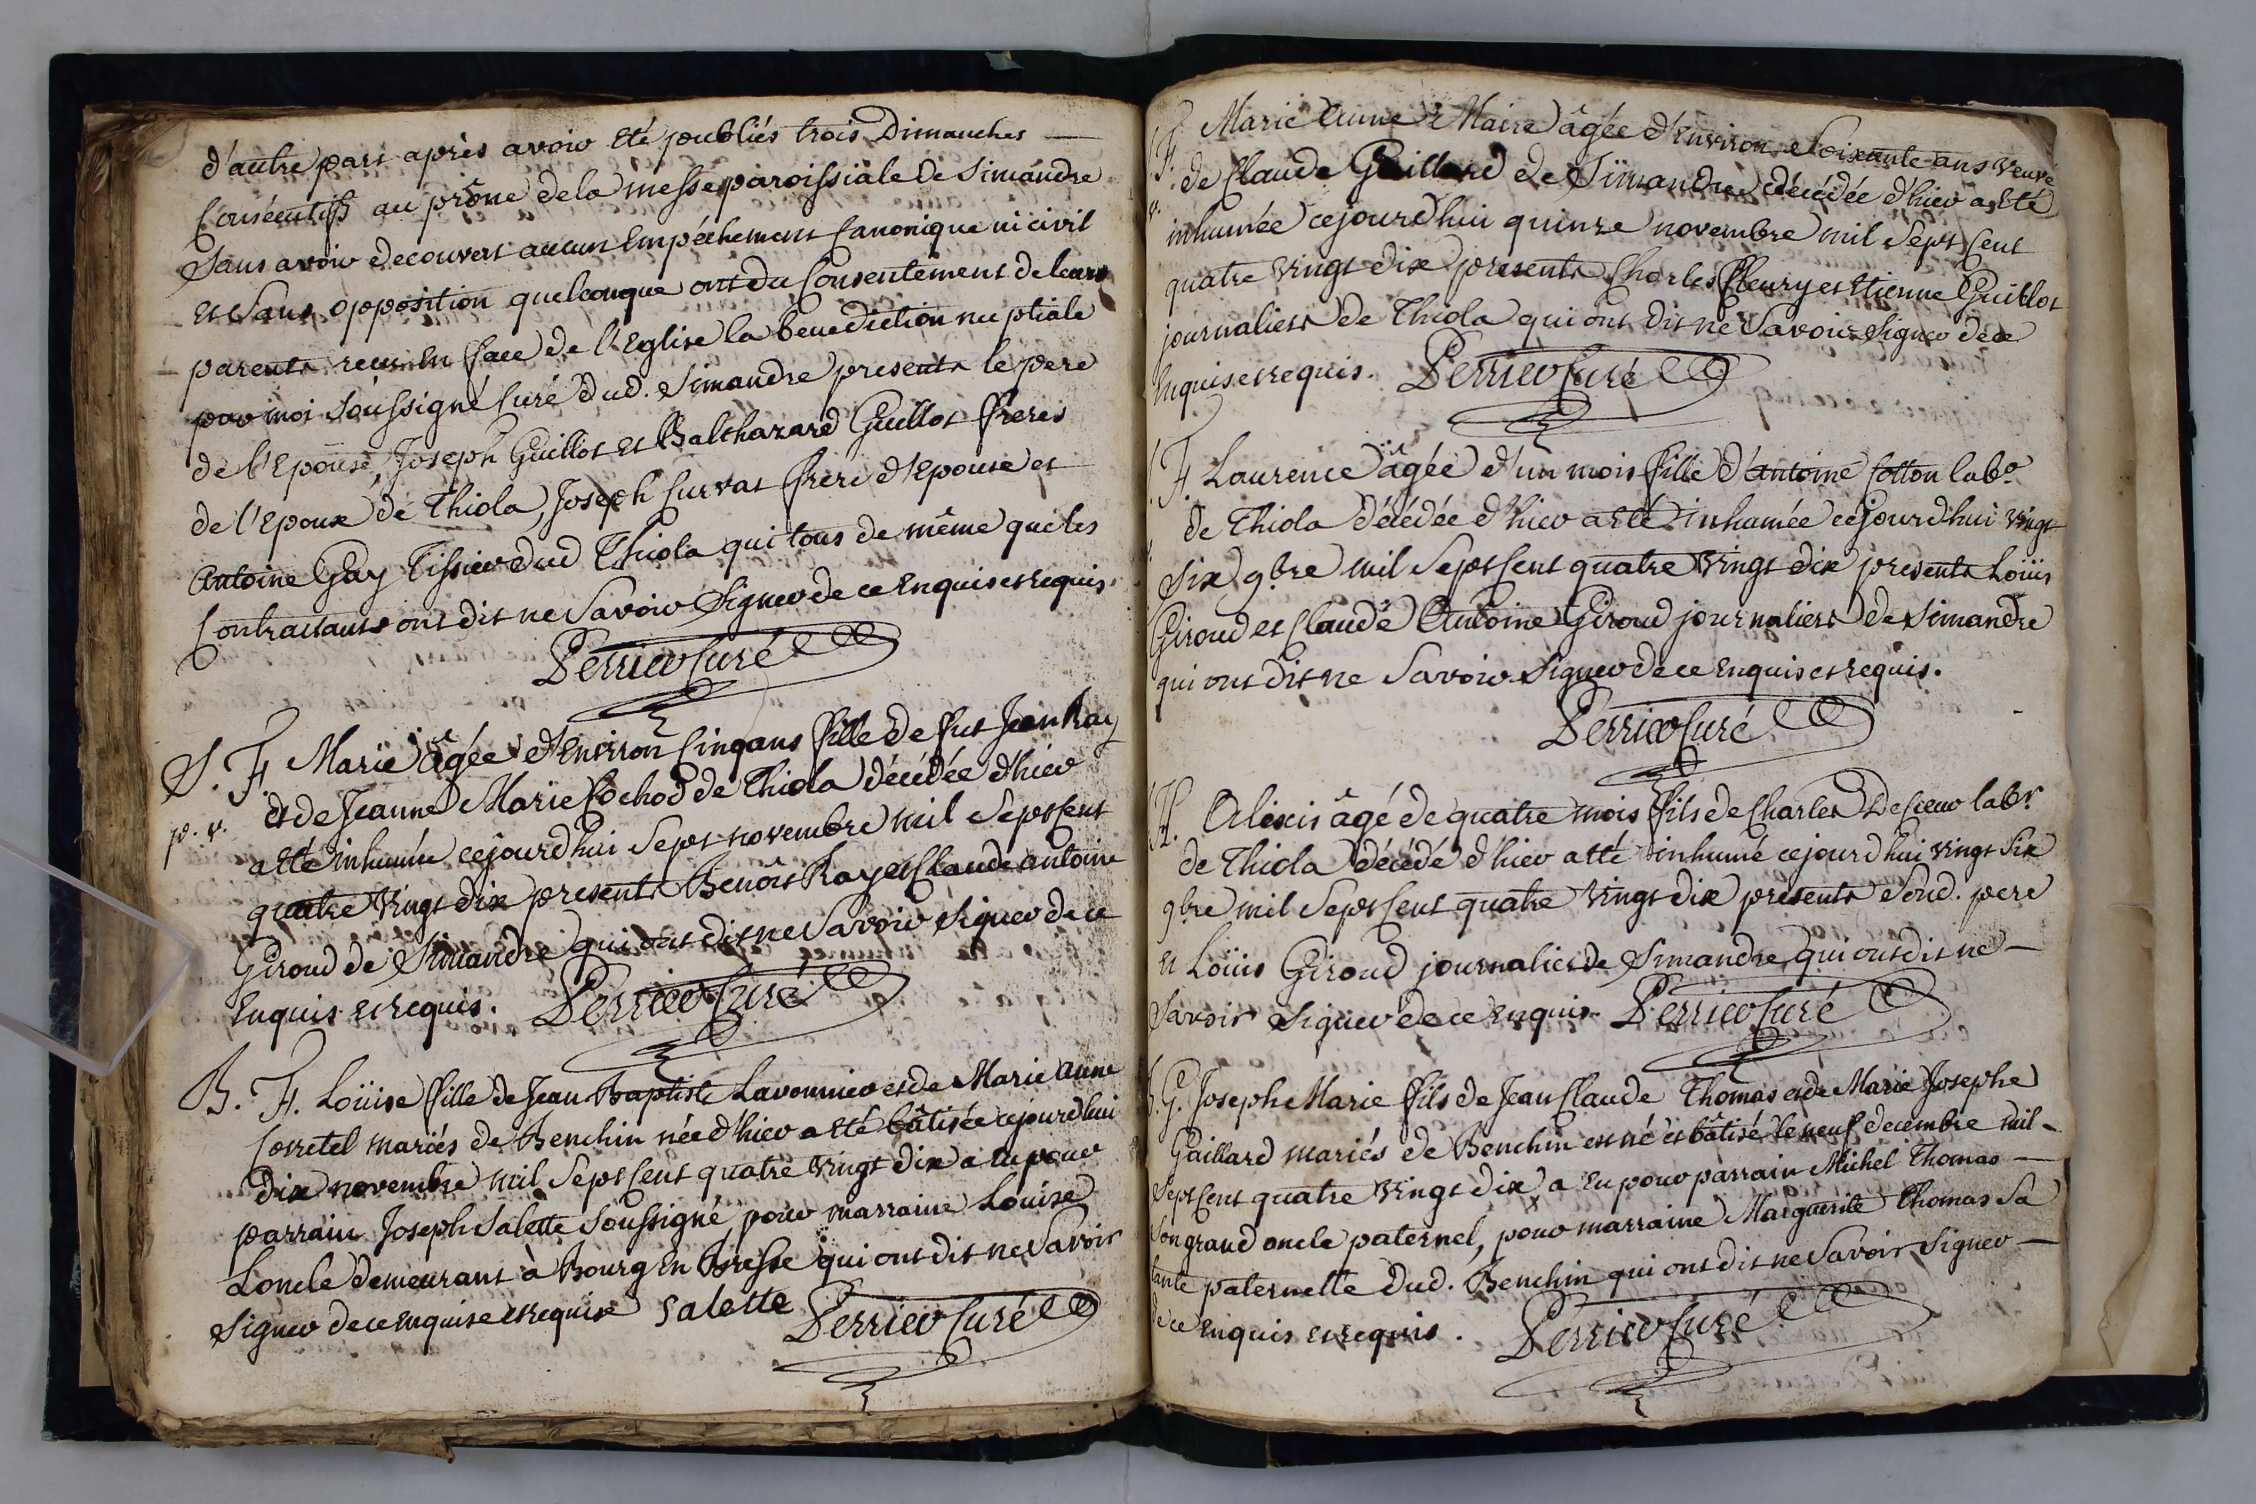 d'autre part après avoir été publiés trois Dimanches
Consécutifs au prône de la messe paroissiale de Simandre
Sans avoir decouvert aucun Empéchement Canonique ni civil
et Sans opposition quelconque ont du Consentement de leurs
parents recu En face de l'Eglise la benediction nuptiale
par moi Soussigné Curé dud. Simandre presents le pere
de l'Epouse, Joseph Guillot et Balthazard Guillot freres
de l'Epoux de Thiola, Joseph Curvat frere d'Epouse et
Antoine Gay Tissier dud Thiola qui tous de même que les
Contractants ont dit ne Savoir Signer de ce Enquis et requis.
Perrier Curé
S. F. Marie âgée d'Environ Cinq ans fille de fut Jean Ray
et de Jeanne Marie Cochod de Thiola décédée d'hier
p. v. a été inhumée cejourd'hui Sept novembre mil Sept Cent
quatre Vingt dix presents Benoit Ray et Claude antoine
Giroud de Simandre qui ont dit ne Savoir Signer de ce
Enquis et requis. Perrier Curé
B. F. Loüise fille de Jean Baptiste Lavonnier et de Marie anne
Corretel mariés de Benchin née d'hier a été bâtisée cejourd'hui
dix novembre mil Sept Cent quatre Vingt dix a eu pour
parrain Joseph Salette Soussigné, pour marraine Louise
Loncle demeurant à Bourg En Bresse qui ont dit ne Savoir
Signer de ce Enquise et requise Salette Perrier Curé
F. Marie Anne Maire âgée d'Environ Soixante ans Veuve
de Claude Gaillard de Simandre décédée d'hier a Eté
v. inhumée cejourd'hui quinze novembre mil Sept Cent
quatre Vingt dix presents Charles Fleury et Etienne Guillot
journaliers de Thiola qui ont dit ne Savoir Signer de ce
Enquis et requis. Perrier Curé
F. Laurence âgée d'un mois fille d'antoine Cotton labr
de Thiola décédée d'hier a Eté inhumée cejourd'hui Vingt
Six 9bre mil Sept Cent quatre Vingt dix presents Loüis
Giroud et Claude Antoine Giroud journaliers de Simandre
qui ont dit ne Savoir Signer de ce Enquis et requis.
Perrier Curé
Alexis âgé de quatre mois fils de Charles labr
de Thiola décédé d'hier a été inhumé cejourd'hui Vingt Six
9bre mil Sept Cent quatre Vingt dix presents Sond. pere
et Loüis Giroud journalier de Simandre qui ont dit ne
Savoir Signer de ce Enquis Perrier Curé
G. Joseph Marie fils de Jean Claude Thomas et de Marie Josephe
Gaillard mariés de Benchin est né et bâtisé le neuf decembre mil
Sept Cent quatre Vingt dix a Eu pour parrain Michel Thomas
Son grand oncle paternel, pour marraine Marguerite Thomas Sa
tante paternelle dud. Benchin qui ont dit ne Savoir Signer
de ce Enquis et requis. Perrier Curé